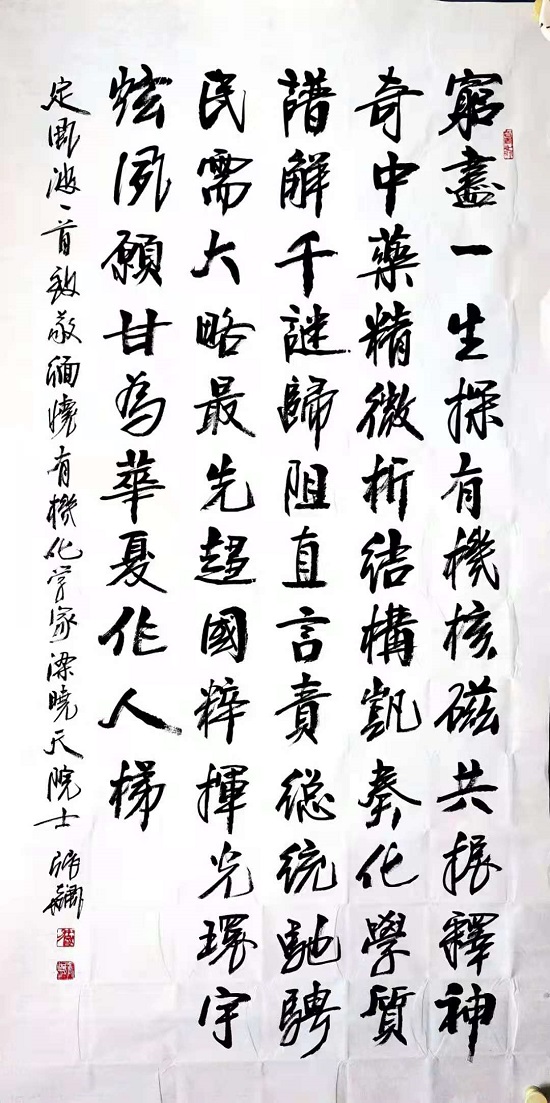 窮盡一生探有機核磁共振釋神
奇中藥精微析結構凱奏化學質
譜解千謎歸阻直言責總統馳騁
民需大略最先超國粹揮光環宇
炫夙願甘為華夏作人梯
定風波一首致敬緬懷有機化学家梁曉天院士